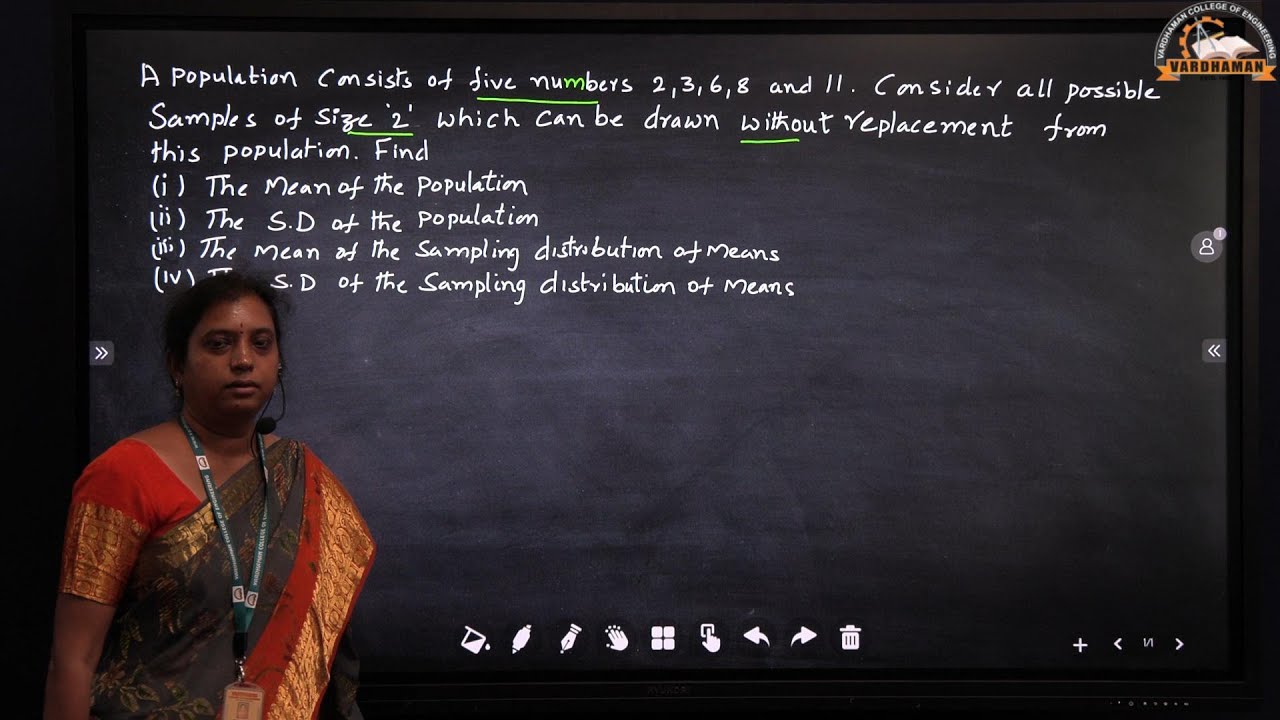 VARDHAMAN COLLEGE OF ENGINEERING
VARDHAMAN
A population consists of five numbers 2,3,6,8 and 11. Consider all possible
Samples of size '2' which can be drawn without replacement from
this population. Find
(i) The Mean of the population
(ii) The S.D of the population
(iii) The Mean of the Sampling distribution of Means
(iv) S.D of the Sampling distribution of Means
1
1/1